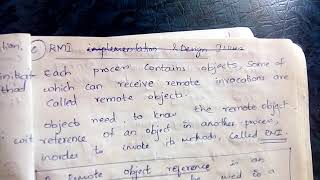 ② RMI implementation & Design Issues
Each process contains objects, some of
which can receive remote invocations are
called remote objects.
objects need to know the remote object
reference of an object in another process,
inorder to invoke its methods, called RMI.
remote object reference is an
be used to a